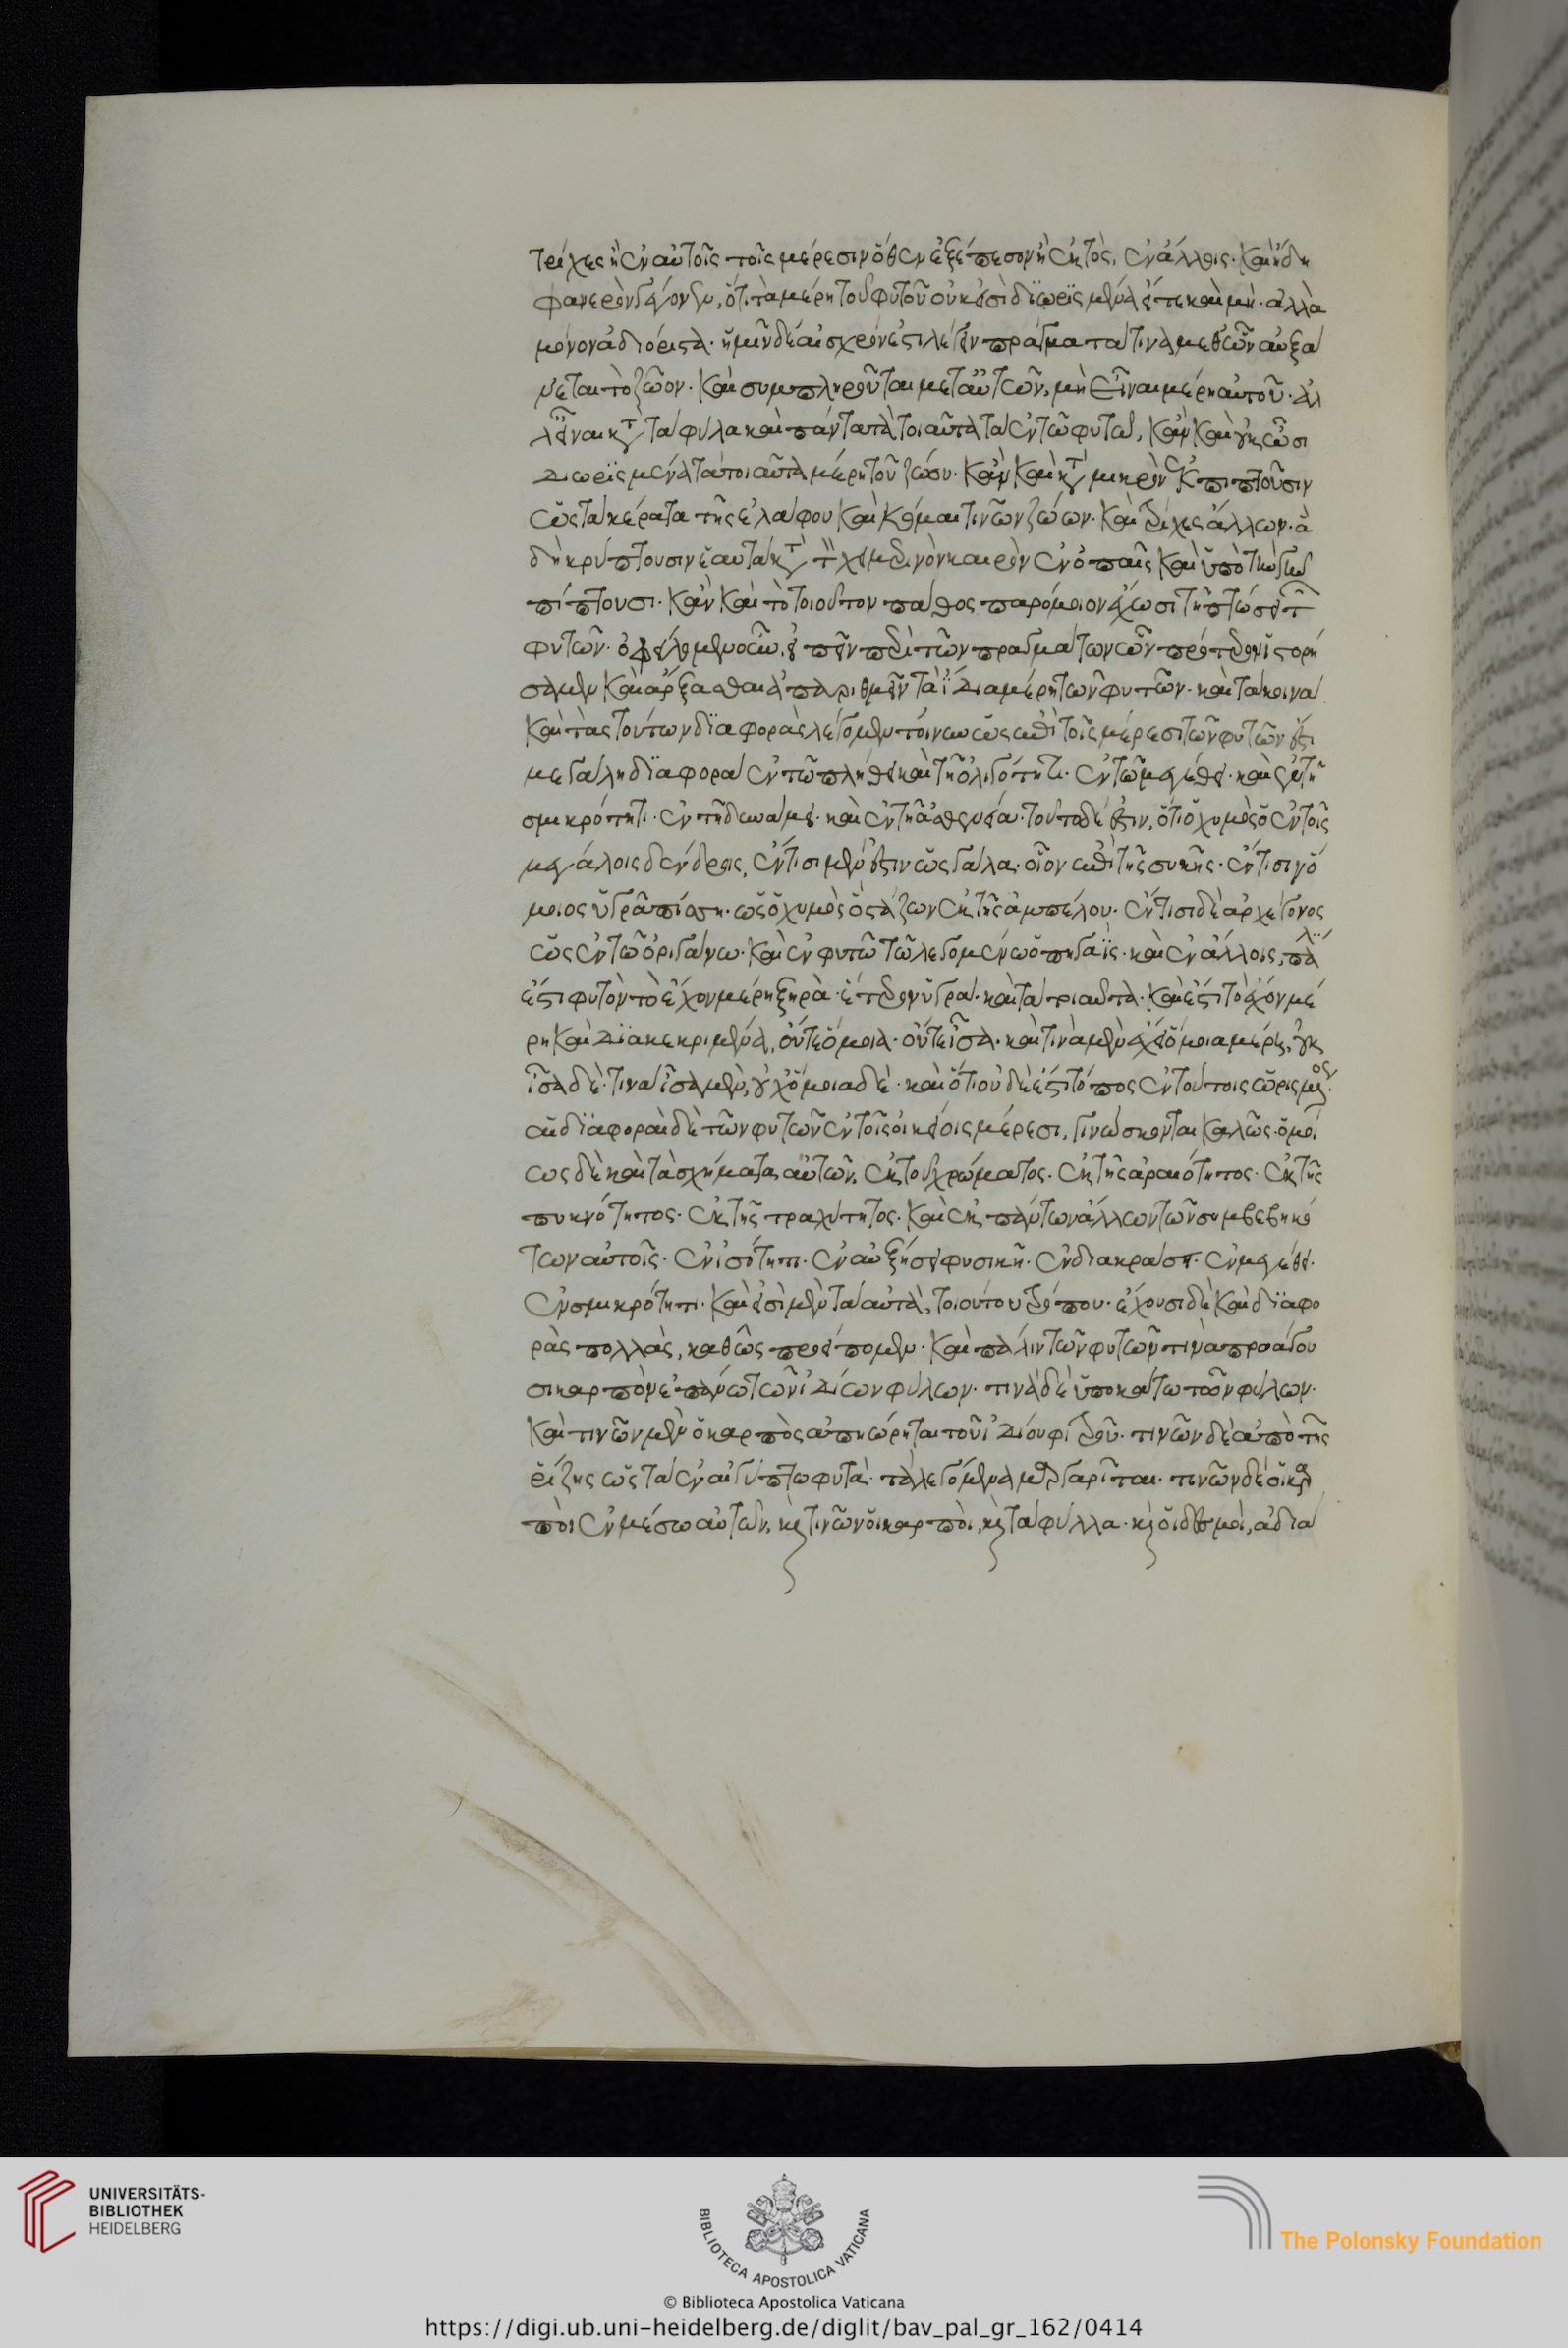 τρίχες ἢ ἐν αὐτοῖς τοῖς μέρεσιν ὅθεν ἐξέπεσον ἢ ἐκτὸς, ἐν ἄλλοις. καὶ ἤδη
φανερὸν γέγονεν, ὅτι τὰ μέρη τοῦ φυτοῦ οὐκ εἰσὶ διωρισμένα εἴτε καὶ μή. ἀλλὰ
μόνον ἀδιόριστα. ἡμῖν δὲ αἰσχρόν ἐστι λέγειν πράγματά τινα μεθ' ὧν αὐξά
νεται τὸ ζῶον. καὶ συμπληροῦται μετ' αὐτῶν, μὴ εἶναι μέρη αὐτοῦ. ἀλ
λ' εἶναι κατὰ τὰ φύλα καὶ πάντα τὰ τοιαῦτα τὰ ἐν τῷ φυτῷ, κἂν καὶ οὐκ ὦσι
διωρισμένα τὰ τοιαῦτα μέρη τοῦ ζώου. κἂν καὶ κατὰ μικρὸν ἐκπιπτοῦσιν
ὡς τὰ κέρατα τῆς ἐλάφου καὶ κόμαι τινῶν ζώων. καὶ τρίχες ἄλλων. ἃ
δὴ κρύπτουσιν ἑαυτὰ κατὰ τὸν χειμερινὸν καιρὸν ἐν ὀπαῖς καὶ ὑπὸ τὴν γῆν
πίπτουσι. κἂν καὶ τὸ τοιοῦτον πάθος παρόμοιον ἔχωσι τῇ πτώσει τῶν
φυτῶν. ὀφείλομεν οὖν, εἰπεῖν περὶ τῶν πραγμάτων ὧν πρότερον ἱστορή
σαμεν καὶ ἄρξασθαι ἀπαριθμεῖν τὰ ἴδια μέρη τῶν φυτῶν. καὶ τὰ κοινὰ
καὶ τὰς τούτων διαφορὰς λέγομεν τοίνυν ὡς ἐπὶ τοῖς μέρεσι τῶν φυτῶν ἐστὶ
μεγάλη διαφορὰ ἐν τῷ πλήθει καὶ τῇ ὀλιγότητι. ἐν τῷ μεγέθει. καὶ ἐν τῇ
σμικρότητι. ἐν τῇ δυνάμει. καὶ ἐν τῇ ἀσθενείᾳ. τοῦτο δέ ἐστιν, ὅτι ὁ χυμὸς ὁ ἐν τοῖς
μεγάλοις δένδροις, ἔν τισι μέν ἐστιν ὡς γάλα. οἷον ἐπὶ τῆς συκῆς. ἔν τισιν ὅ
μοιος ὑγρᾷ πίσσῃ. ὡς ὁ χυμὸς ὁ στάζων ἐκ τῆς ἀμπέλου. ἔν τισι δὲ ἀρχέγονος
ὡς ἐν τῷ ὀριγάνῳ. καὶ ἐν φυτῷ τῷ λεγομένῳ ὀπιγαΐς. καὶ ἐν ἄλλοις, πάλιν
ἔστι φυτὸν τὸ ἔχον μέρη ξηρὰ. ἕτερον ὑγρά. καὶ τὰ τοιαῦτα. καὶ ἔστι τὸ ἔχον μέ
ρη καὶ διακεκριμένα, οὔτε ὅμοια. οὔτε ἶσα. καὶ τινὰ μὲν ἔχει ὅμοια μέρη, οὐκ
ἶσα δέ. τινὰ ἶσα μὲν, οὐχ ὅμοια δέ. καὶ ὅτι οὐδὲ ἔστι τόπος ἐν τούτοις ὡρισμένος.
αἱ διαφοραὶ δὲ τῶν φυτῶν ἐν τοῖς οἰκείοις μέρεσι, γινώσκονται καλῶς. ὁμοί
ως δὲ καὶ τὰ σχήματα αὐτῶν, ἐκ τοῦ χρώματος. ἐκ τῆς ἀραιότητος. ἐκ τῆς
πυκνότητος. ἐκ τῆς τραχύτητος. καὶ ἐκ πάντων ἄλλων τῶν συμβεβηκό
των αὐτοῖς. ἐν ἰσότητι. ἐν αὐξήσει φυσικῇ. ἐν διακράσει. ἐν μεγέθει.
ἐν σμικρότητι. καὶ εἰσὶ μὲν ταῦτα, τοιούτου τρόπου. ἔχουσι δὲ καὶ διαφο
ρὰς πολλὰς, καθὼς προείπομεν. καὶ πάλιν τῶν φυτῶν τινὰ προάγου
σι καρπὸν ἐπάνω τῶν ἰδίων φύλων. τινὰ δὲ ὑποκάτω τῶν φύλων.
καὶ τινῶν μὲν ὁ καρπὸς ἀπηώρηται τοῦ ἰδίου φυτοῦ. τινῶν δὲ ἀπὸ τῆς
ῥίζης ὡς τὰ ἐν αἰγύπτῳ φυτὰ. τὰ λεγόμενα μεργαρῖται. τινῶν δὲ οἱ καρ
ποὶ ἐν μέσῳ αὐτῶν, καὶ τινῶν οἱ καρποὶ, καὶ τὰ φύλλα. καὶ οἱ δεσμοὶ, ἀδιά
UNIVERSITÄTS-
BIBLIOTHEK
HEIDELBERG
BIBLIOTECA APOSTOLICA VATICANA
The Polonsky Foundation
© Biblioteca Apostolica Vaticana
https://digi.ub.uni-heidelberg.de/diglit/bav_pal_gr_162/0414